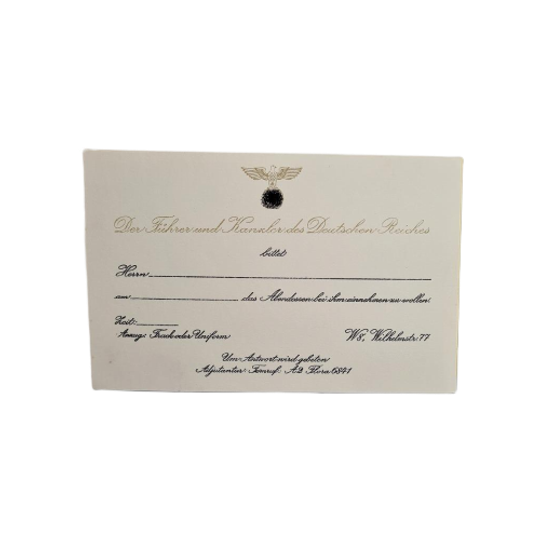 Der Führer und Kanzler des Deutschen Reiches
bittet
Herrn
am das Abendessen bei ihm einnehmen zu wollen.
Zeit:
Anzug: Frack oder Uniform W8, Wilhelmstr 77
Um Antwort wird gebeten
Adjutantur Fernruf: A2 Flora 6841